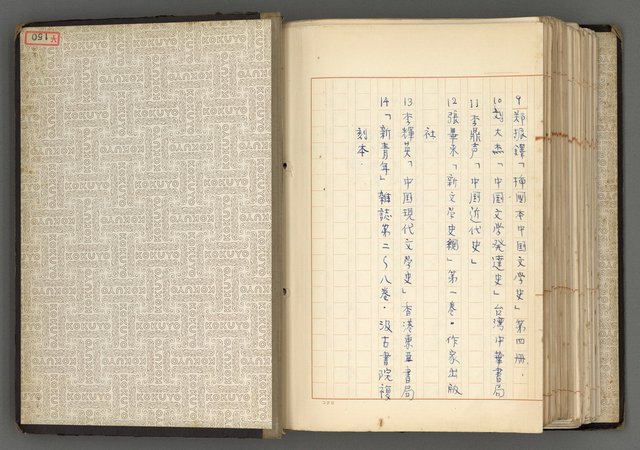 9 郑振鐸「插图本中国文学史」第四冊.
10 刘大杰「中国文学発達史」台湾中華書局
11 李鼎声「中国近代史」
12 張畢来「新文学史綱」第一巻・作家出版
社
13 李輝英「中国現代文学史」香港東亜書局
14「新青年」雑誌第二～八巻・汲古書院複
刻本.
1
KOKUYO
150